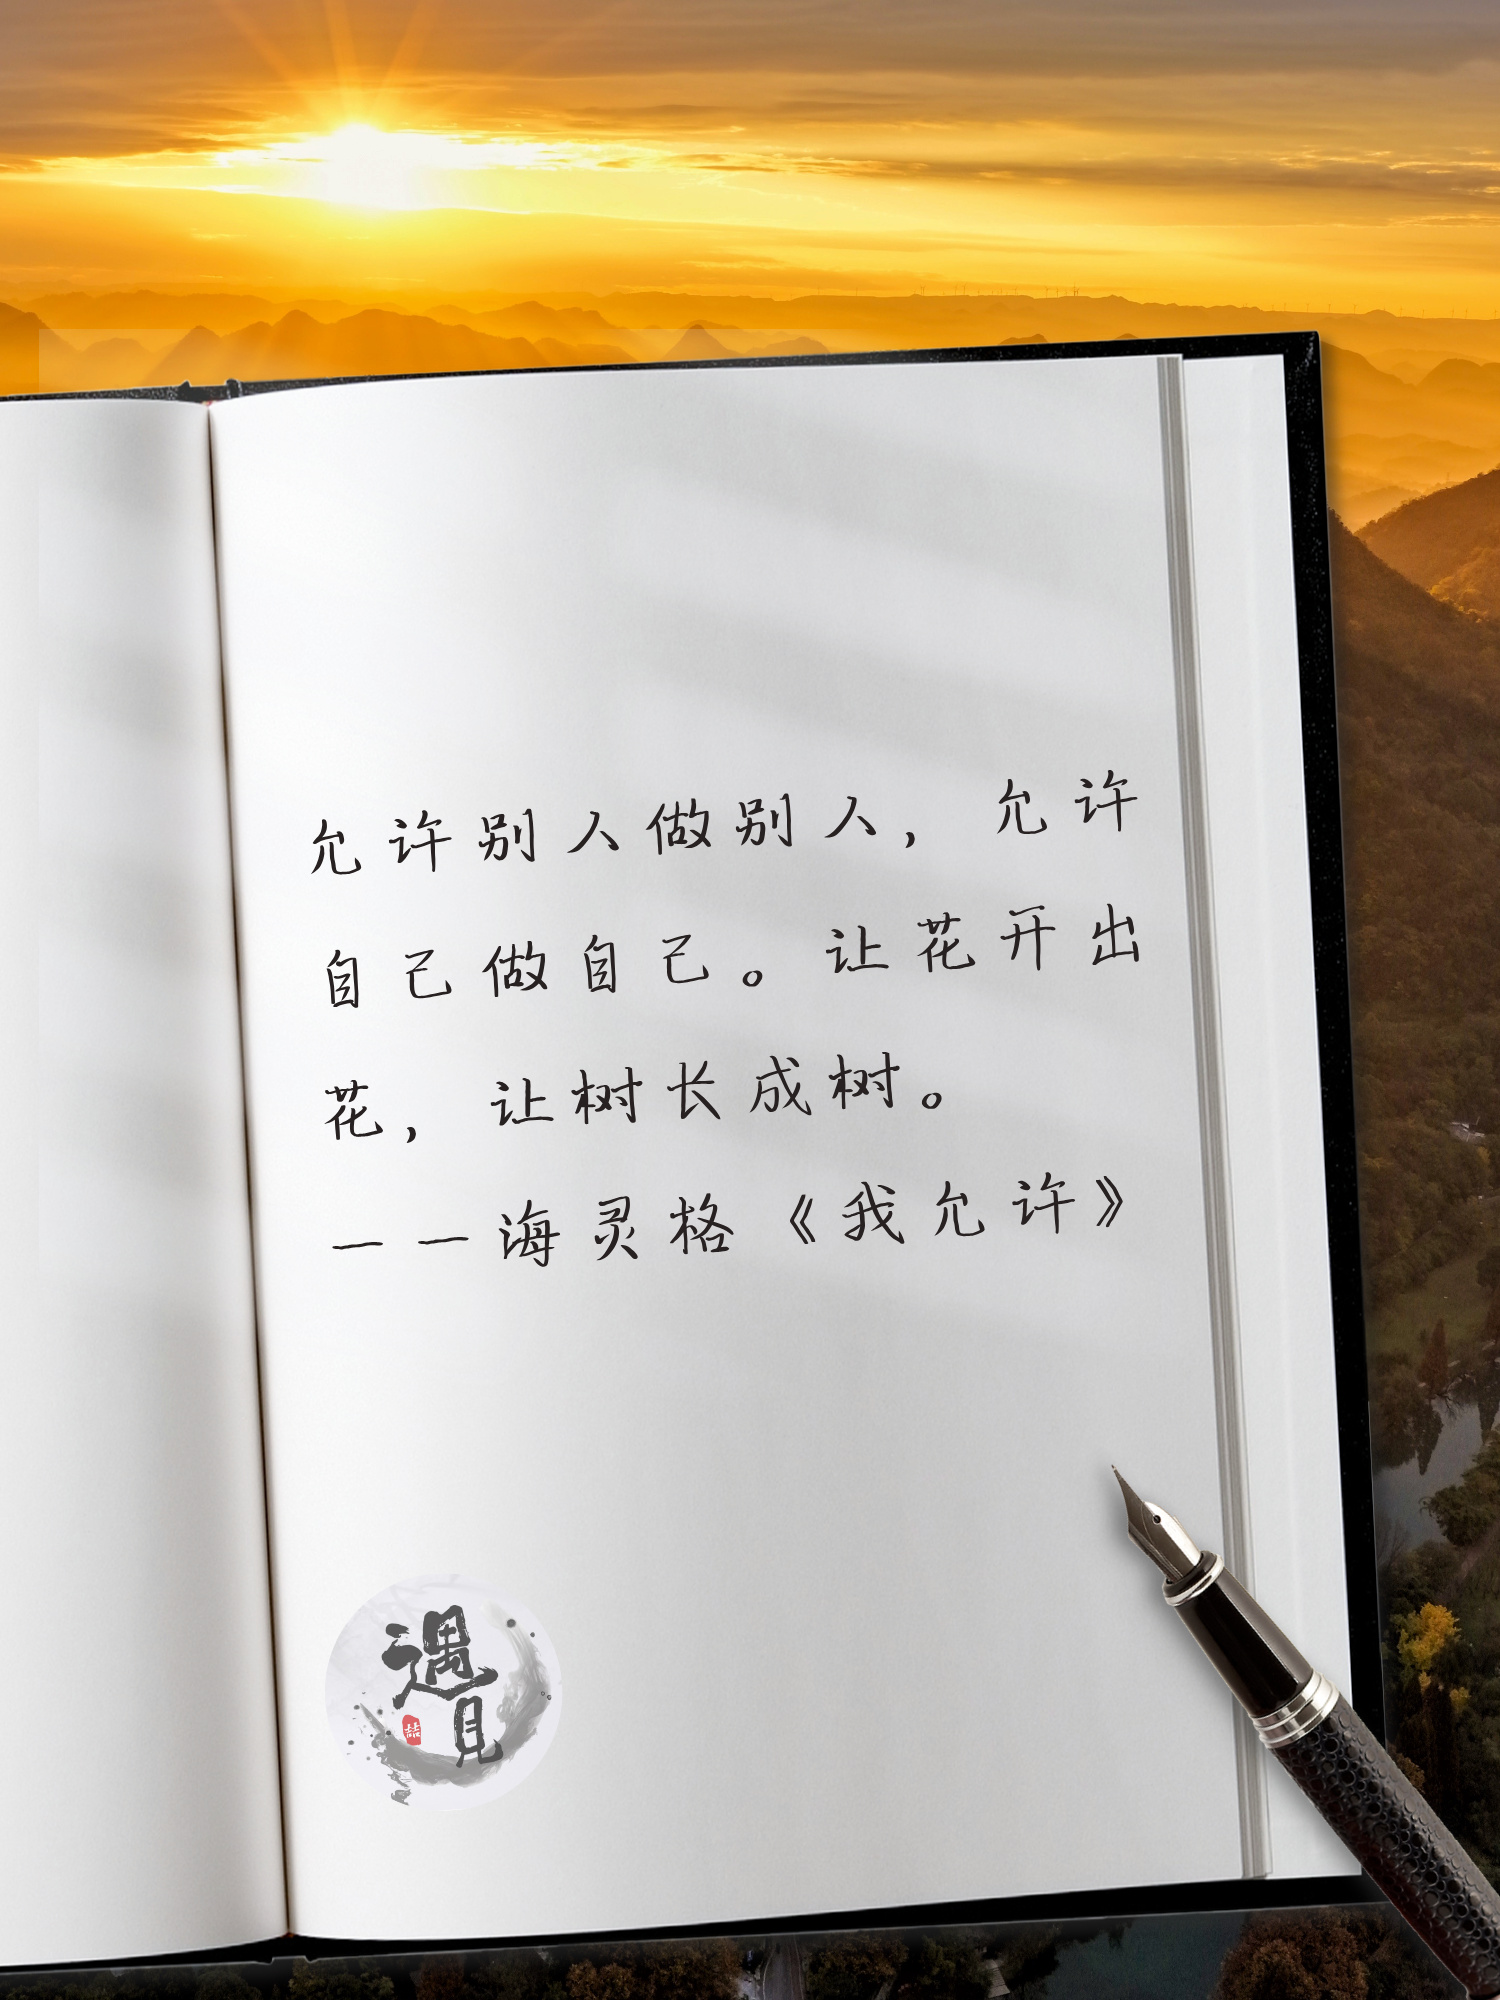 允许别人做别人，允许
自己做自己。让花开出
花，让树长成树。
——海灵格《我允许》
遇見
喆